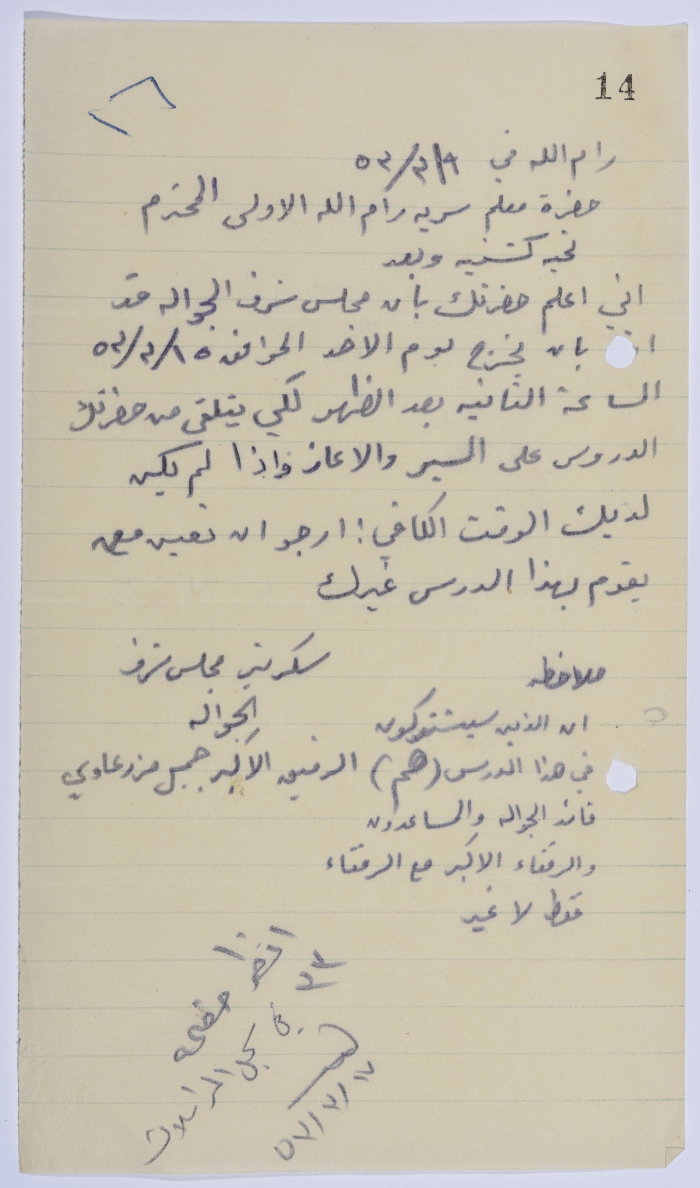 14
رام الله في ٩/٣/٥٣
حضرة معلم سريه رام الله الاولى المحترم
تحيه كشفيه وبعد
اني اعلم حضرتك بأن مجلس شرف الجواله قد
بان يخرج يوم الاحد الموافق ١٥/٣/٥٣
الساعة الثانيه بعد الظهر لكي يتلقى من حضرتك
الدروس على السير والاعاز واذا لم يكن
لديك الوقت الكافي! ارجو ان تعين معلم
يقوم بهذا الدرس غيرك
سكرتير مجلس شرف
الجواله
ملاحظه
ان الذين سيشتركون
في هذا الدرس (هم) الرفيق الاكبر جميل مزرعاوي
قائد الجواله والمساعدون
والرفقاء الاكبر مع الرفقاء
فقط لا غير